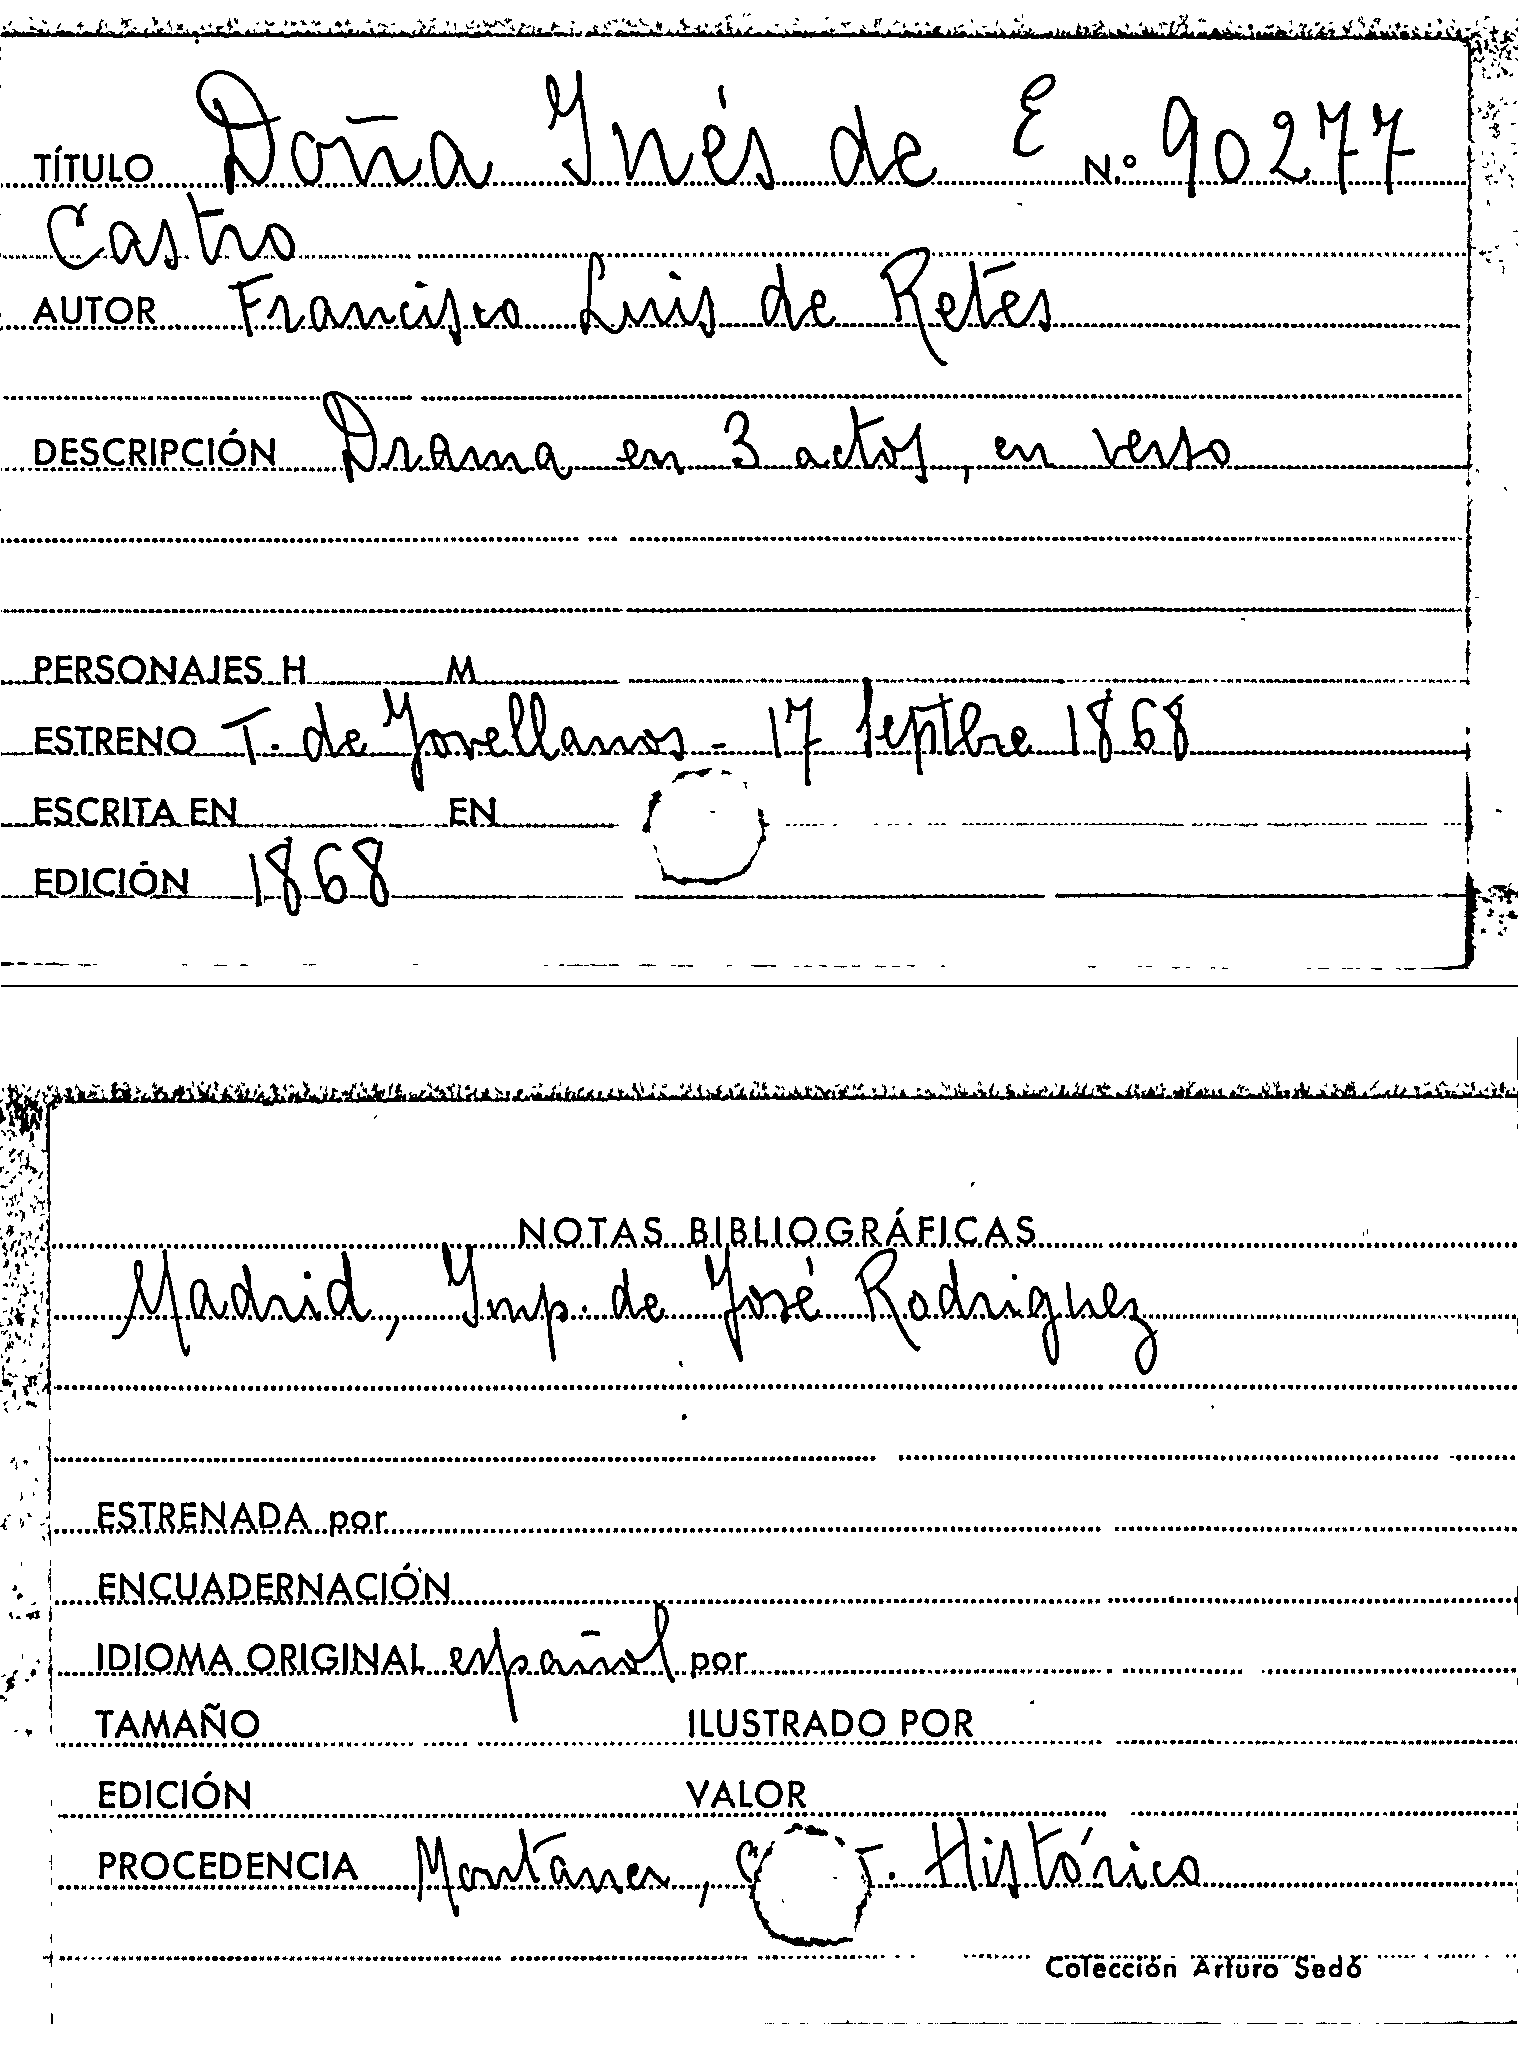 TÍTULO Doña Inés de E N.º 90277
Castro
AUTOR Francisco Luis de Retes
DESCRIPCIÓN Drama en 3 actos, en verso
PERSONAJES H M
ESTRENO T. de Jovellanos - 17 Septbre 1868
ESCRITA EN EN
EDICIÓN 1868
NOTAS BIBLIOGRÁFICAS
Madrid, Imp. de José Rodriguez
ESTRENADA por
ENCUADERNACIÓN
IDIOMA ORIGINAL español por
TAMAÑO ILUSTRADO POR
EDICIÓN VALOR
PROCEDENCIA Montaner, T. Histórico
Colección Arturo Sedó